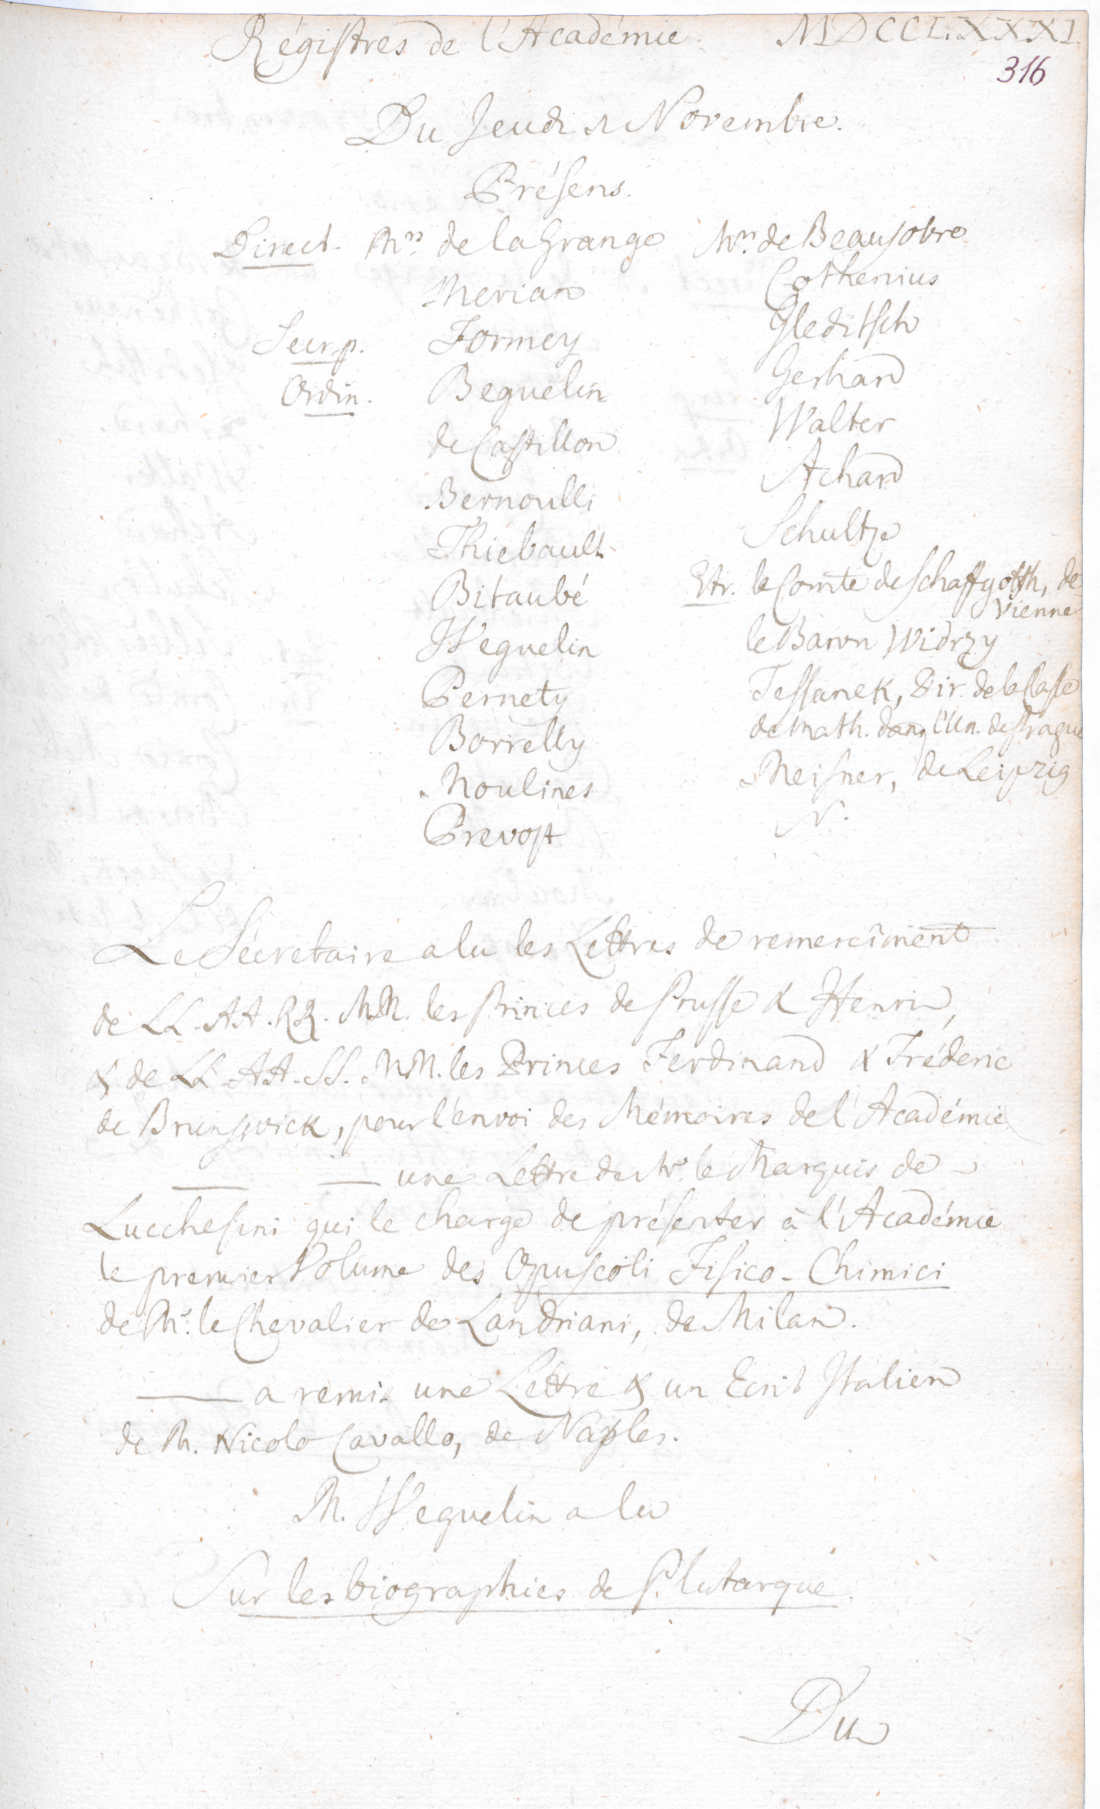 Régistres de l'Académie. MDCCLXXXI.
316
Du Jeudi 1 Novembre.
Présens.
Direct. Mrs de la Grange
Merian
Secr. p. Formey
Ordin. Beguelin
de Castillon
Bernoulli
Thiebault
Bitaubé
Weguelin
Pernety
Borrelly
Moulines
Prevost
Mrs. de Beausobre
Cothenius
Gleditsch
Gerhard
Walter
Achard
Schultze
Etr. le Comte de Schaffgotsh, de
Vienne
le Baron Widrzy
Tessanek, Dir. de la Classe
de Math. dans l'Un. de Prague
Meisner, de Leipzig
N.
Le Sécretaire a lu les Lettres de remerciment
de LL. AA. RR. MM. les Princes de Prusse & Henri,
& de LL. AA. SS. MM. les Princes Ferdinand & Fréderic
de Brunswick, pour l'envoi des Mémoires de l'Académie
— — une Lettre de Mr. le Marquis de
Lucchesini qui le charge de présenter à l'Académie
le premier Volume des Opuscoli Fisico-Chimici
de Mr. le Chevalier de Landriani, de Milan.
— a remis une Lettre & un Ecrit Italien
de M. Nicolo Cavallo, de Naples.
M. Weguelin a lu
Sur les biographies de Plutarque
Du